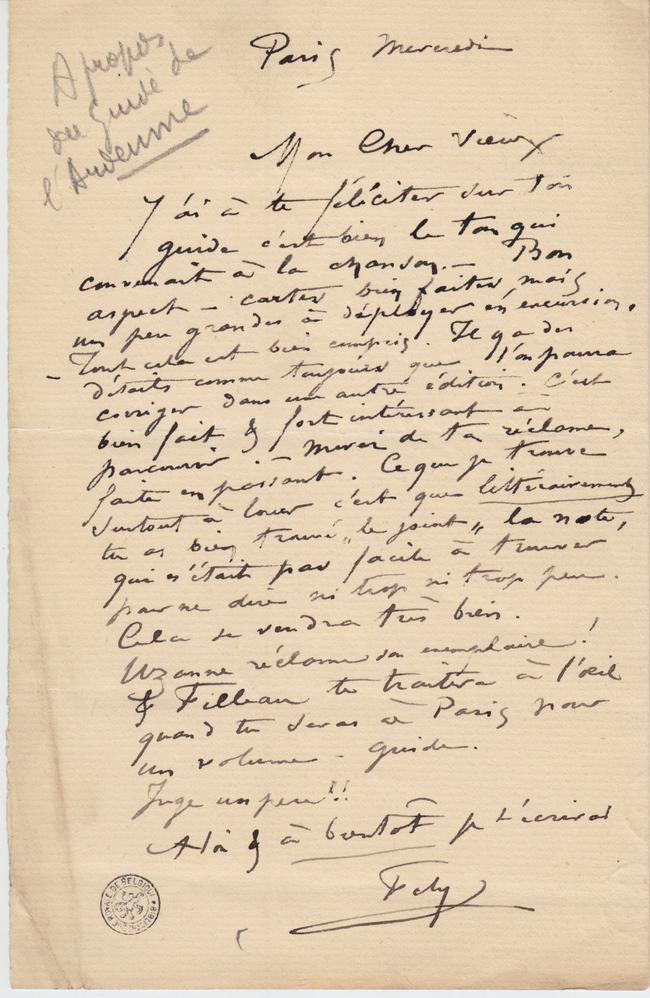 A propos
du Guide de
l'Ardenne
Paris Mercredi
Mon Cher Vieux
J'ai à te féliciter sur ton
guide c'est bien le ton qui
convenait à la chanson. — Bon
aspect — cartes bien faites, mais
un peu grandes à déployer en excursion.
— Tout cela est bien compris. Il y a des
détails comme toujours que l'on pourra
corriger dans une autre édition. C'est
bien fait & fort intéressant à
parcourir. — Merci de ta réclame,
faite en passant. Ce que je trouve
surtout à louer c'est que littérairement
tu as bien trouvé „le joint„ la note,
qui n'était pas facile à trouver
pour ne dire ni trop ni trop peu.
Cela se vendra très bien.
Uzanne réclame son exemplaire !
& Filleau te traitera à l'œil
quand tu seras à Paris pour
un volume - guide.
Juge un peu !!
A toi & à bientôt je t'écrirai
Fély